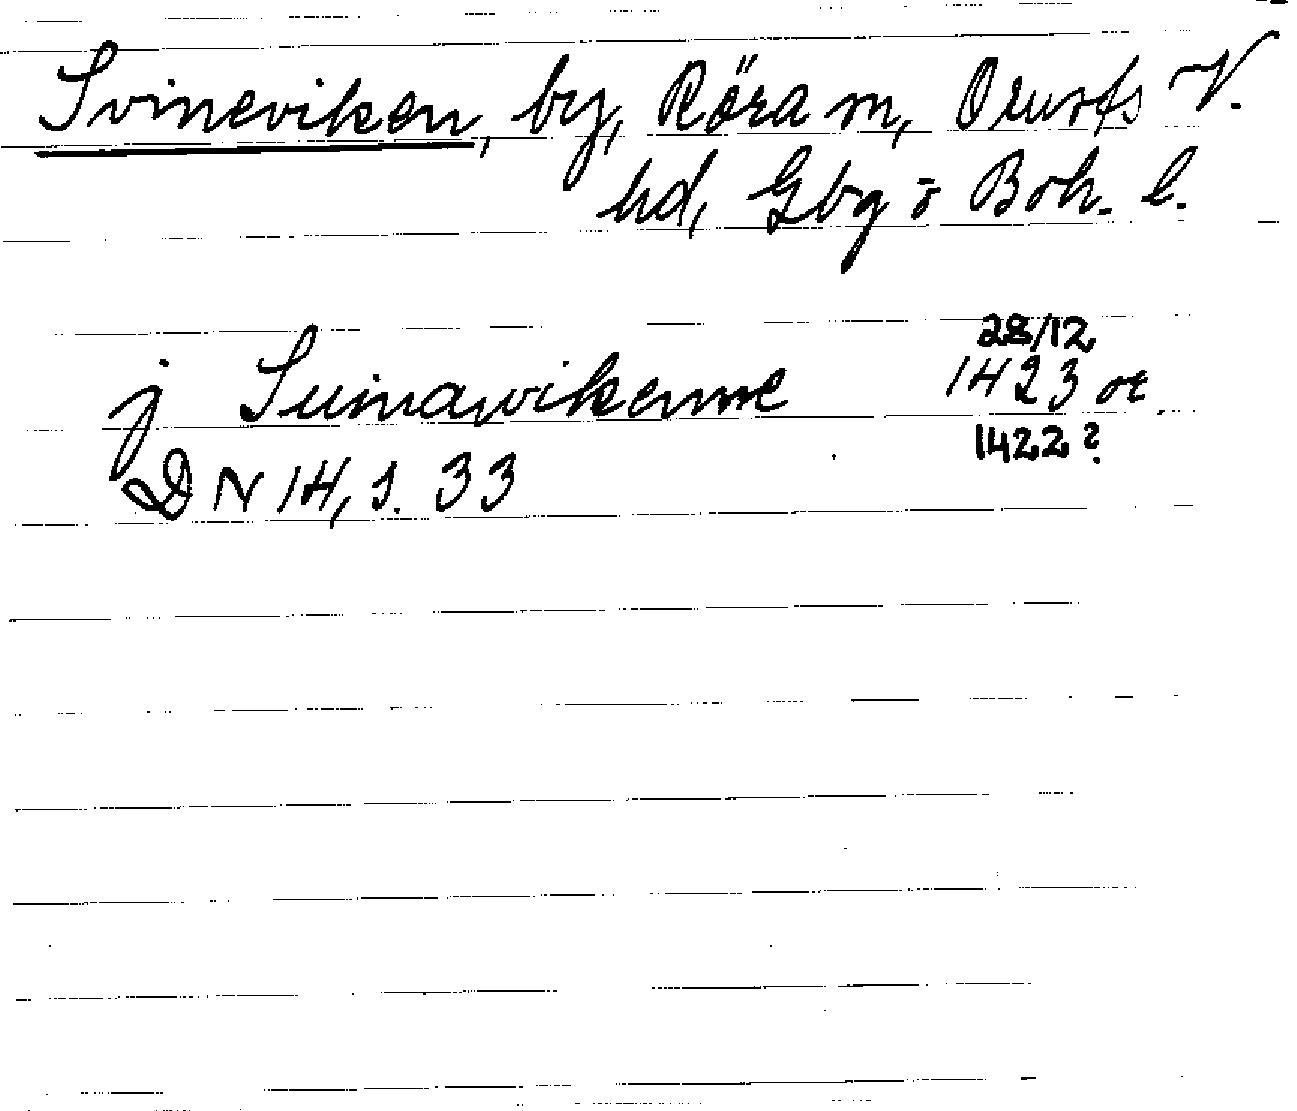 Svineviken, by, Röra sn, Orusts V.
hd, Gbg o Boh. l.
28/12
j Suinawikenne 1423 or.
1422?
DN 14, s. 33